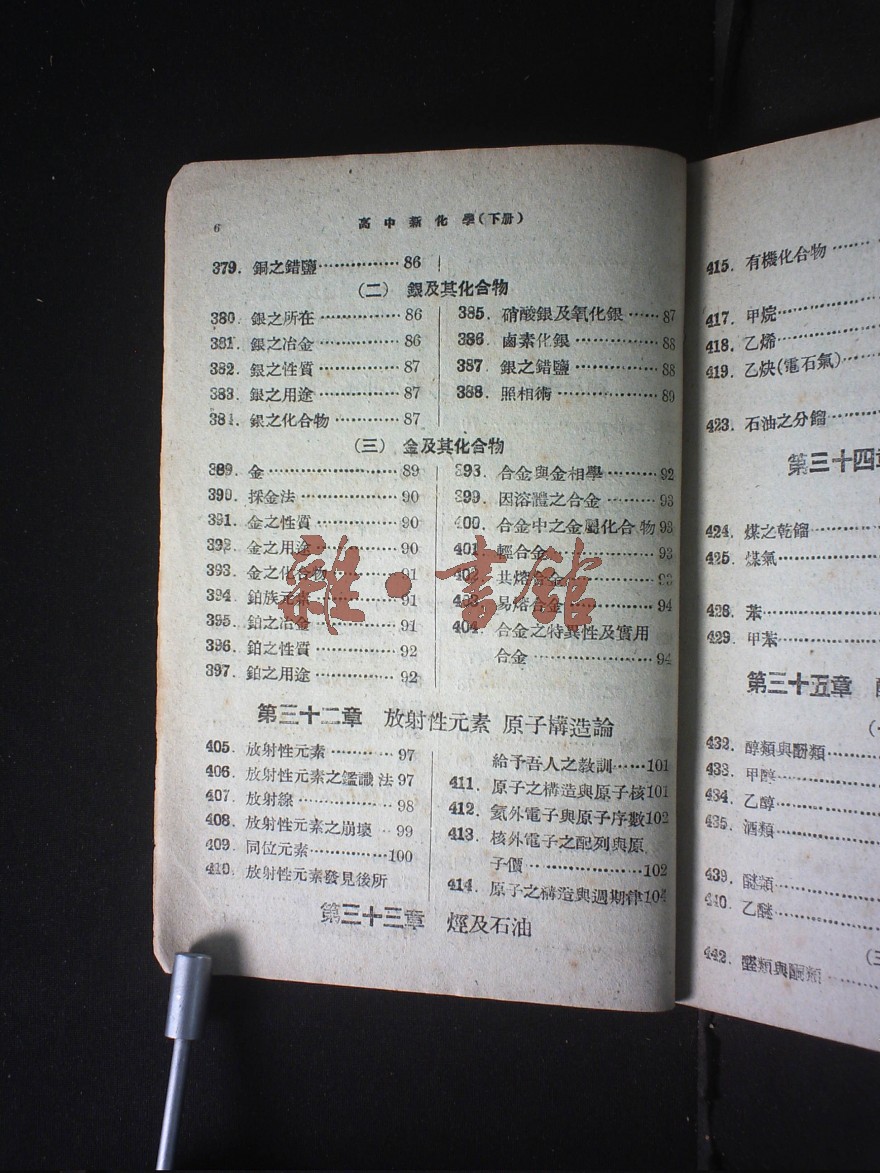 6
高中新化學(下册)
379. 銅之錯鹽……………86
(二) 銀及其化合物
380. 銀之所在……………86
381. 銀之冶金……………86
382. 銀之性質……………87
383. 銀之用途……………87
384. 銀之化合物…………87
385. 硝酸銀及氧化銀……87
386. 鹵素化銀……………88
387. 銀之錯鹽……………88
388. 照相術………………89
(三) 金及其化合物
389. 金……………………89
390. 採金法………………90
391. 金之性質……………90
392. 金之用途……………90
393. 金之化合物…………91
394. 鉑族元素……………91
395. 鉑之冶金……………91
396. 鉑之性質……………92
397. 鉑之用途……………92
398. 合金與金相學………92
399. 固溶體之合金………93
400. 合金中之金屬化合物93
401. 輕合金………………93
402. 共熔合金……………93
403. 易熔合金……………94
404. 合金之特異性及實用
合金……………94
雜·書館
第三十二章 放射性元素 原子構造論
405. 放射性元素…………97
406. 放射性元素之鑑識法97
407. 放射線………………98
408. 放射性元素之崩壞…99
409. 同位元素……………100
410. 放射性元素發見後所
給予吾人之教訓……101
411. 原子之構造與原子核101
412. 氦外電子與原子序數102
413. 核外電子之配列與原
子價……………102
414. 原子之構造與週期律104
第三十三章 烴及石油
415. 有機化合物……
417. 甲烷……
418. 乙烯……
419. 乙炔(電石氣)……
423. 石油之分餾……
第三十四章
424. 煤之乾餾……
425. 煤氣……
428. 苯……
429. 甲苯……
第三十五章
432. 醇類與酚類……
433. 甲醇……
434. 乙醇……
435. 酒類……
439. 醚類……
440. 乙醚……
(三
442. 醛類與酮類……